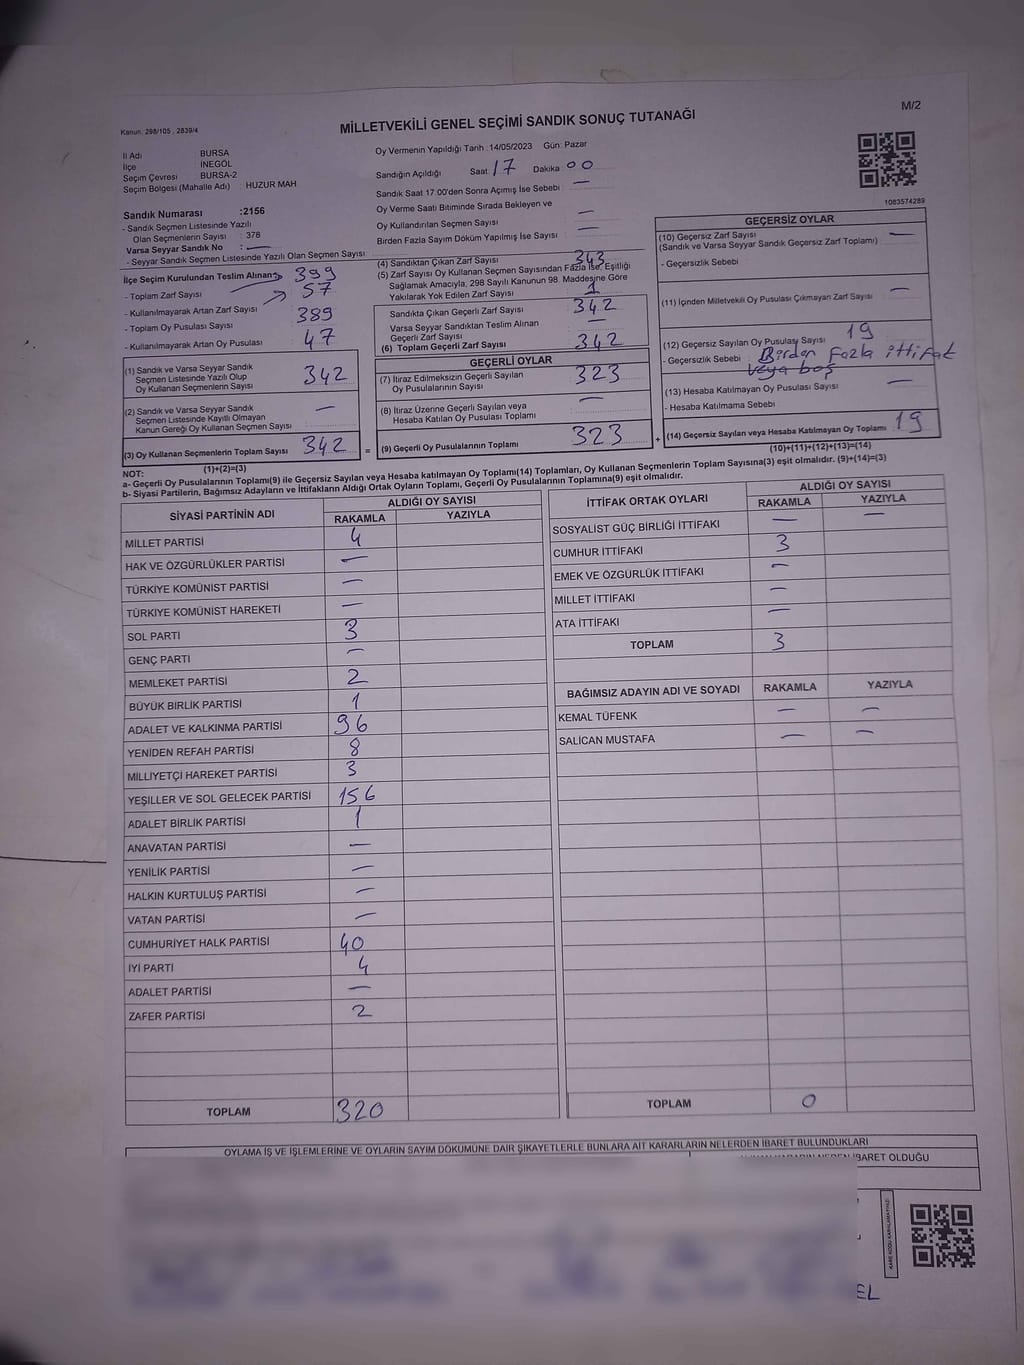 M/2
Kanun. 298/105 , 2839/4
MİLLETVEKİLİ GENEL SEÇİMİ SANDIK SONUÇ TUTANAĞI
İl Adı BURSA
İlçe İNEGÖL
Seçim Çevresi BURSA-2
Seçim Bölgesi (Mahalle Adı) HUZUR MAH
Oy Vermenin Yapıldığı Tarih : 14/05/2023 Gün: Pazar
Sandığın Açıldığı Saat : 17 Dakika 00
Sandık Saat 17.00'den Sonra Açımış İse Sebebi : —
Oy Verme Saati Bitiminde Sırada Bekleyen ve
Oy Kullandırılan Seçmen Sayısı : —
Birden Fazla Sayım Döküm Yapılmış İse Sayısı : —
1083574289
Sandık Numarası :2156
- Sandık Seçmen Listesinde Yazılı
Olan Seçmenlerin Sayısı : 378
Varsa Seyyar Sandık No : —
- Seyyar Sandık Seçmen Listesinde Yazılı Olan Seçmen Sayısı
İlçe Seçim Kurulundan Teslim Alınan 399
- Toplam Zarf Sayısı 57
- Kullanılmayarak Artan Zarf Sayısı 389
- Toplam Oy Pusulası Sayısı
- Kullanılmayarak Artan Oy Pusulası 47
(1) Sandık ve Varsa Seyyar Sandık
Seçmen Listesinde Yazılı Olup
Oy Kullanan Seçmenlerin Sayısı 342
(2) Sandık ve Varsa Seyyar Sandık
Seçmen Listesinde Kayıtlı Olmayan
Kanun Gereği Oy Kullanan Seçmen Sayısı : —
(3) Oy Kullanan Seçmenlerin Toplam Sayısı 342 =
(1)+(2)=(3)
(4) Sandıktan Çıkan Zarf Sayısı 343
(5) Zarf Sayısı Oy Kullanan Seçmen Sayısından Fazla İse, Eşitliği
Sağlamak Amacıyla, 298 Sayılı Kanunun 98. Maddesine Göre
Yakılarak Yok Edilen Zarf Sayısı 1
Sandıkta Çıkan Geçerli Zarf Sayısı 342
Varsa Seyyar Sandıktan Teslim Alınan
Geçerli Zarf Sayısı —
(6) Toplam Geçerli Zarf Sayısı 342
GEÇERLİ OYLAR
(7) İtiraz Edilmeksizin Geçerli Sayılan
Oy Pusulalarının Sayısı 323
(8) İtiraz Üzerine Geçerli Sayılan veya
Hesaba Katılan Oy Pusulası Toplamı —
(9) Geçerli Oy Pusulalarının Toplamı 323 +
GEÇERSİZ OYLAR
(10) Geçersiz Zarf Sayısı
(Sandık ve Varsa Seyyar Sandık Geçersiz Zarf Toplamı) —
- Geçersizlik Sebebi
(11) İçinden Milletvekili Oy Pusulası Çıkmayan Zarf Sayısı —
(12) Geçersiz Sayılan Oy Pusulası Sayısı 19
- Geçersizlik Sebebi : Birden Fazla ittifak
veya boş
(13) Hesaba Katılmayan Oy Pusulası Sayısı —
- Hesaba Katılmama Sebebi
(14) Geçersiz Sayılan veya Hesaba Katılmayan Oy Toplamı 19
(10)+(11)+(12)+(13)=(14)
NOT:
a- Geçerli Oy Pusulalarının Toplamı(9) ile Geçersiz Sayılan veya Hesaba katılmayan Oy Toplamı(14) Toplamları, Oy Kullanan Seçmenlerin Toplam Sayısına(3) eşit olmalıdır. (9)+(14)=(3)
b- Siyasi Partilerin, Bağımsız Adayların ve İttifakların Aldığı Ortak Oyların Toplamı, Geçerli Oy Pusulalarının Toplamına(9) eşit olmalıdır.
SİYASİ PARTİNİN ADI ALDIĞI OY SAYISI
RAKAMLA YAZIYLA
MİLLET PARTİSİ 4
HAK VE ÖZGÜRLÜKLER PARTİSİ —
TÜRKİYE KOMÜNİST PARTİSİ —
TÜRKİYE KOMÜNİST HAREKETİ —
SOL PARTİ 3
GENÇ PARTİ —
MEMLEKET PARTİSİ 2
BÜYÜK BİRLİK PARTİSİ 1
ADALET VE KALKINMA PARTİSİ 96
YENİDEN REFAH PARTİSİ 8
MİLLİYETÇİ HAREKET PARTİSİ 3
YEŞİLLER VE SOL GELECEK PARTİSİ 156
ADALET BİRLİK PARTİSİ 1
ANAVATAN PARTİSİ —
YENİLİK PARTİSİ —
HALKIN KURTULUŞ PARTİSİ —
VATAN PARTİSİ —
CUMHURİYET HALK PARTİSİ 40
İYİ PARTİ 4
ADALET PARTİSİ —
ZAFER PARTİSİ 2
TOPLAM 320
İTTİFAK ORTAK OYLARI ALDIĞI OY SAYISI
RAKAMLA YAZIYLA
SOSYALİST GÜÇ BİRLİĞİ İTTİFAKI — —
CUMHUR İTTİFAKI 3
EMEK VE ÖZGÜRLÜK İTTİFAKI —
MİLLET İTTİFAKI —
ATA İTTİFAKI —
TOPLAM 3
BAĞIMSIZ ADAYIN ADI VE SOYADI RAKAMLA YAZIYLA
KEMAL TÜFENK — —
SALİCAN MUSTAFA — —
TOPLAM 0
OYLAMA İŞ VE İŞLEMLERİNE VE OYLARIN SAYIM DÖKÜMÜNE DAİR ŞİKAYETLERLE BUNLARA AİT KARARLARIN NELERDEN İBARET BULUNDUKLARI
İBARET OLDUĞU
EL